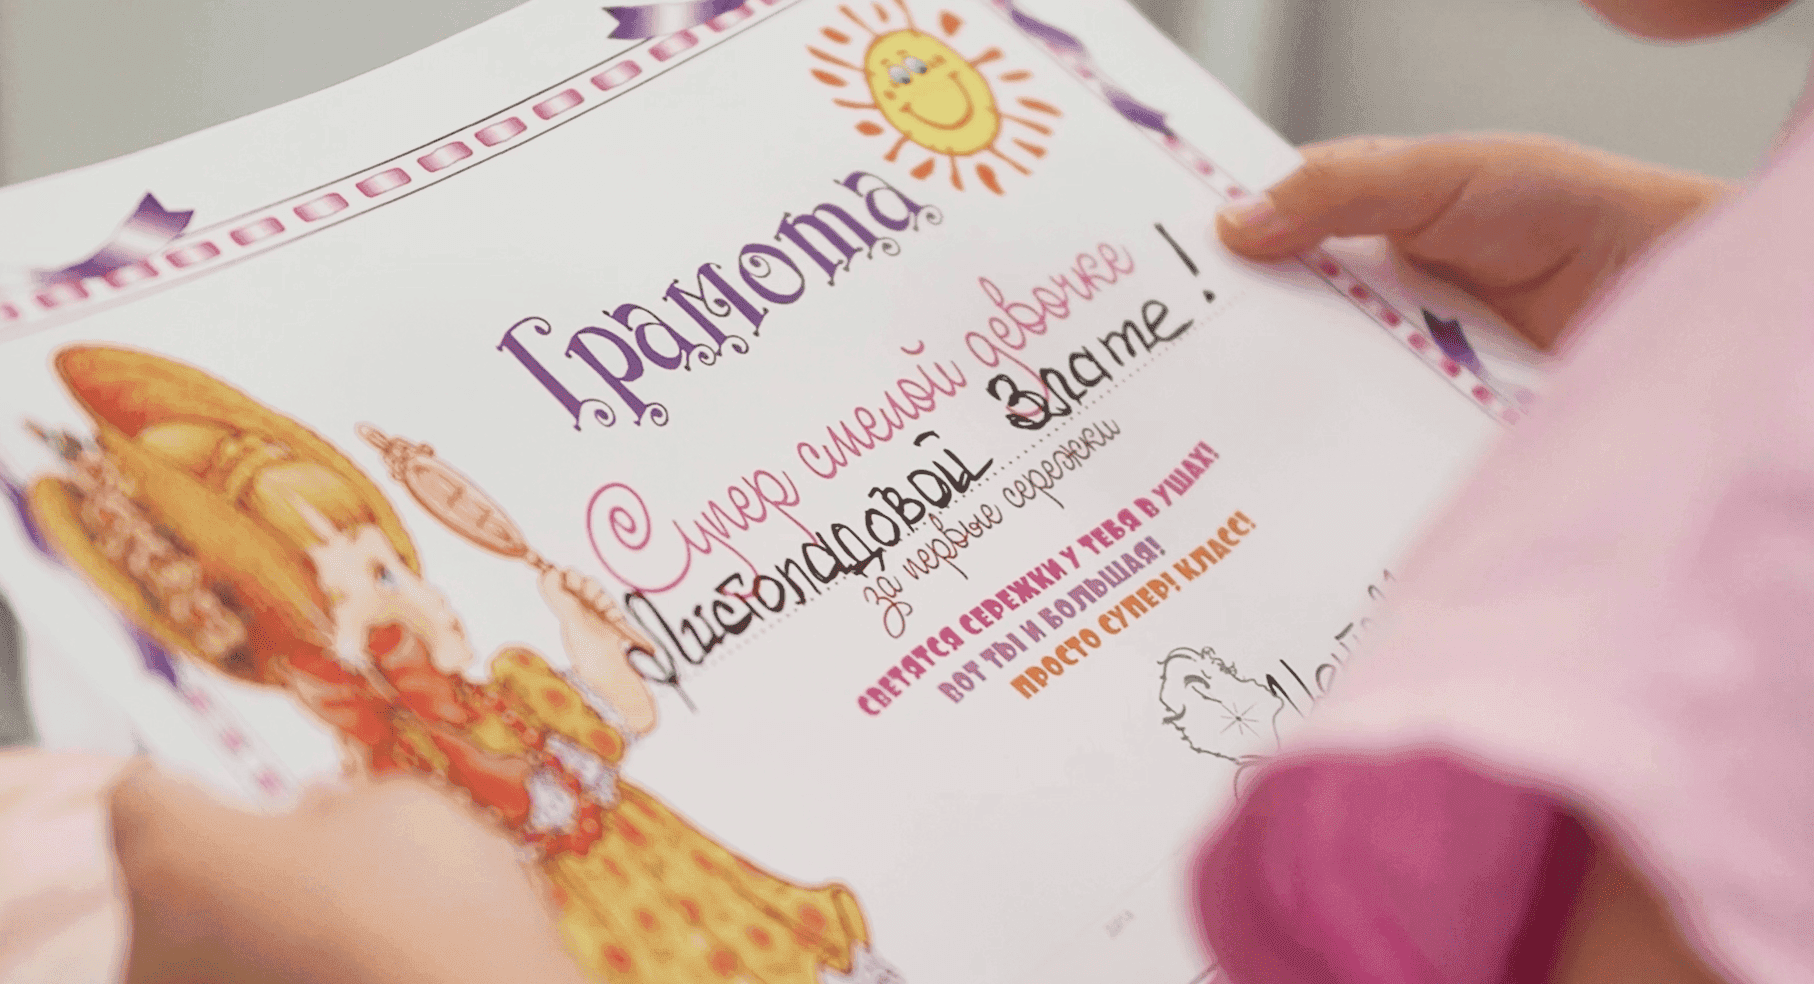 Грамота
Супер смелой девочке
Листопадовой Злате!
за первые сережки
СВЕТЯТСЯ СЕРЕЖКИ У ТЕБЯ В УШАХ!
ВОТ ТЫ И БОЛЬШАЯ!
ПРОСТО СУПЕР! КЛАСС!